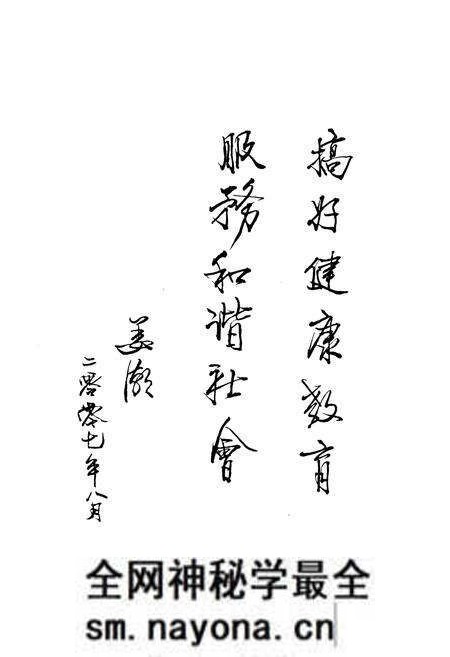 搞好健康教育
服務和谐社會
姜潮
二零零七年八月
全网神秘学最全
sm.nayona.cn